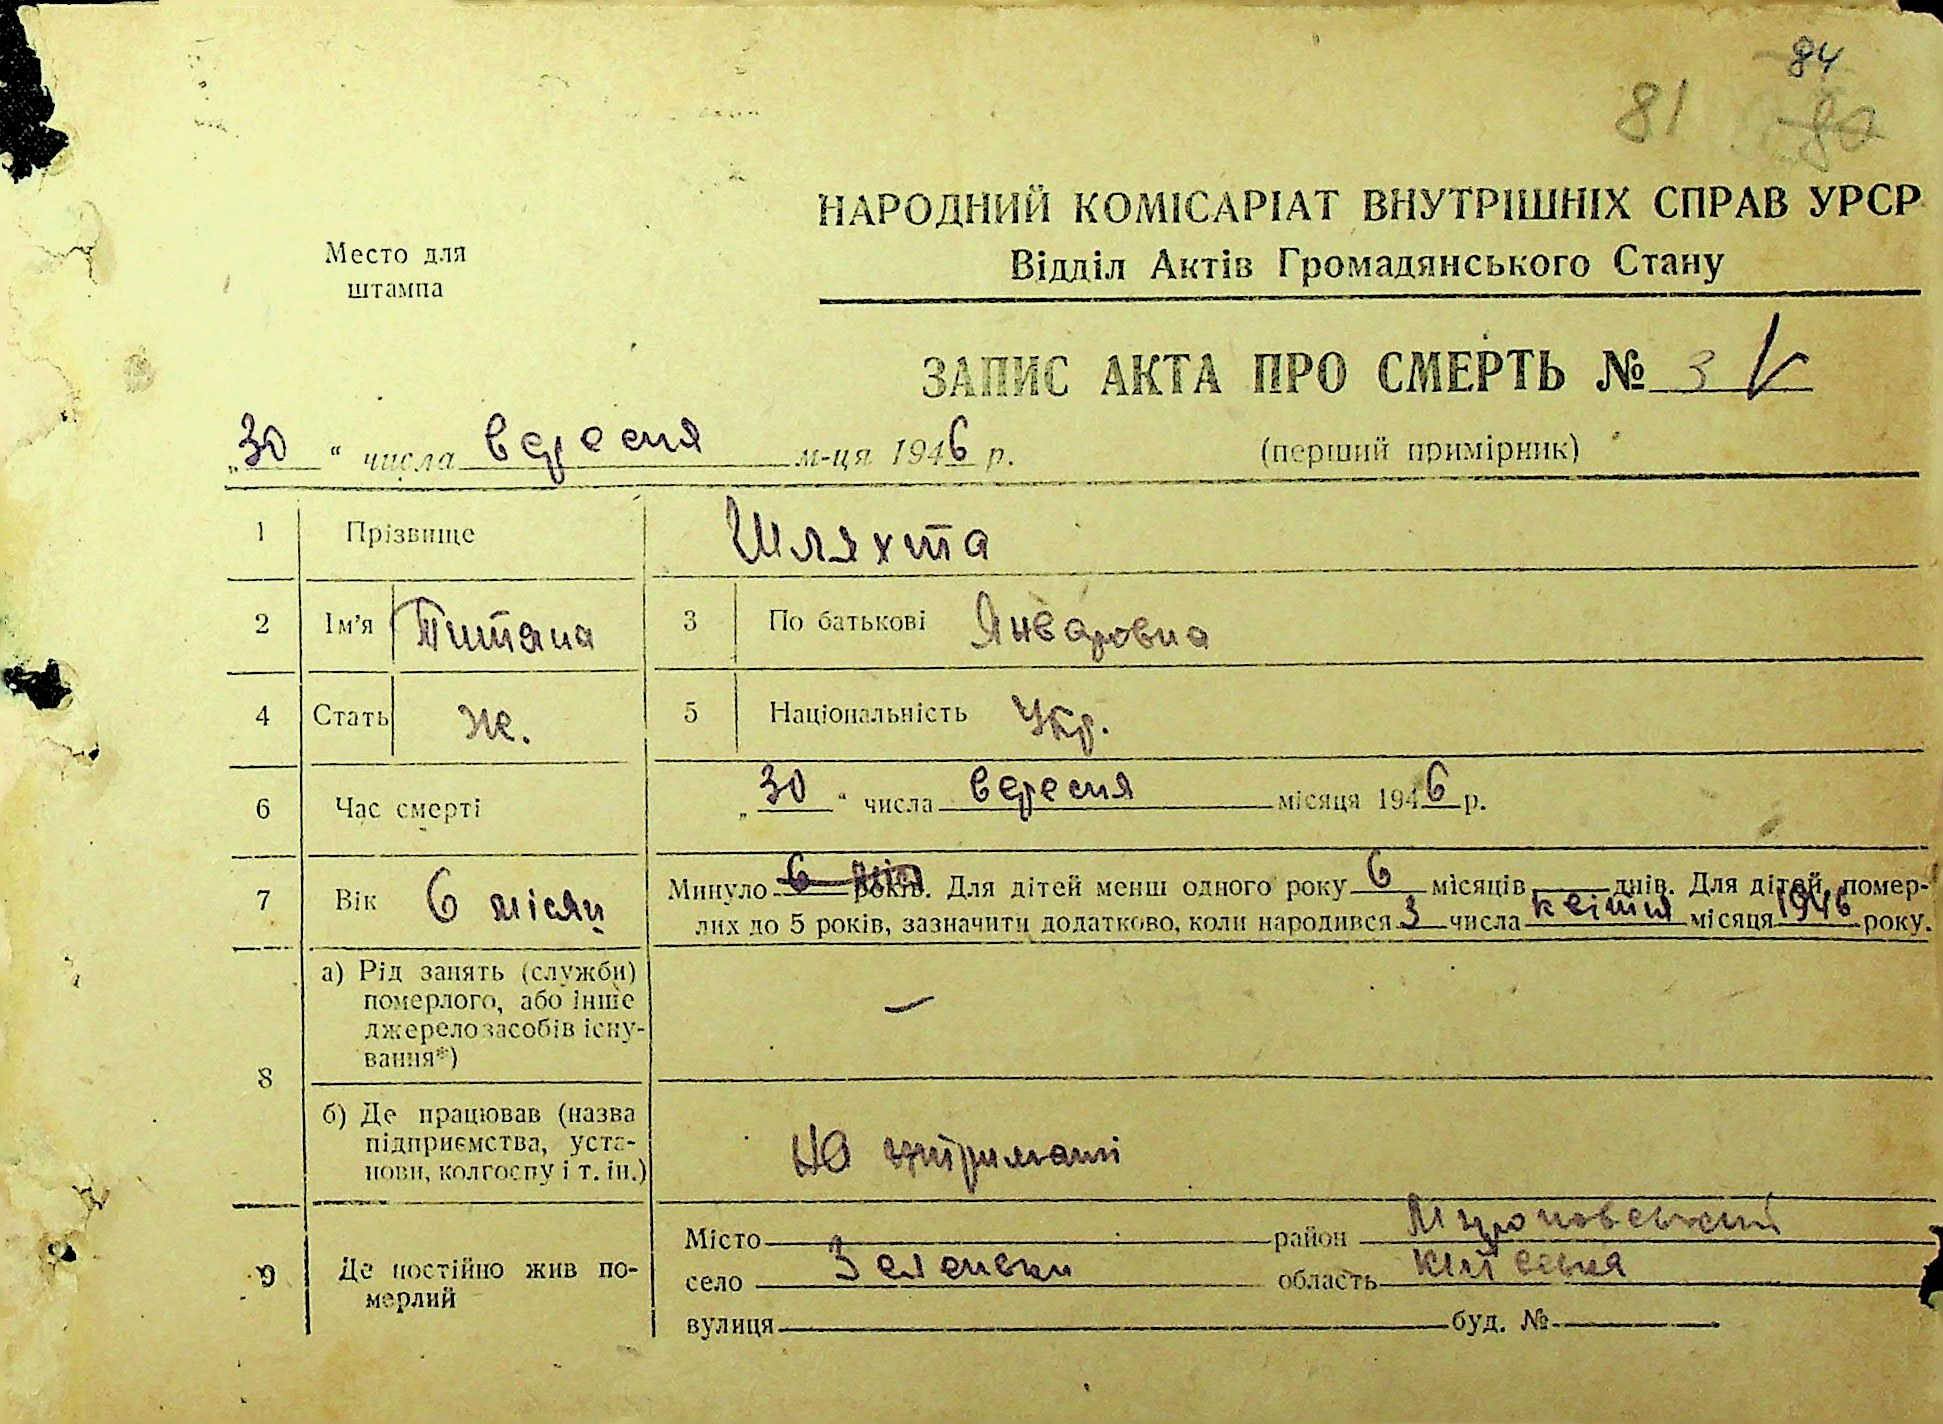 84
81 80
НАРОДНИЙ КОМІСАРІАТ ВНУТРІШНІХ СПРАВ УРСР
Відділ Актів Громадянського Стану
Место для
штампа
ЗАПИС АКТА ПРО СМЕРТЬ № 3
„30“ числа вересня м-ця 1946 р. (перший примірник)
1 Прізвище Шляхта
2 Ім’я Титяна 3 По батькові Январовна
4 Стать Же. 5 Національність Укр.
6 Час смерті „30“ числа вересня місяця 1946 р.
7 Вік 6 місяц Минуло 6 років. Для дітей менш одного року 6 місяців днів. Для дітей, помер-
лих до 5 років, зазначити додатково, коли народився 3 числа квітня місяця 1946 року.
8 а) Рід занять (служби)
померлого, або інше
джерело засобів існу-
вання*)
—
б) Де працював (назва
підприємства, уста-
нови, колгоспу і т. ін.)
на утриманні
9 Де постійно жив по-
мерлий
Місто район Мироновський
село Зеленьки область Київська
вулиця буд. №